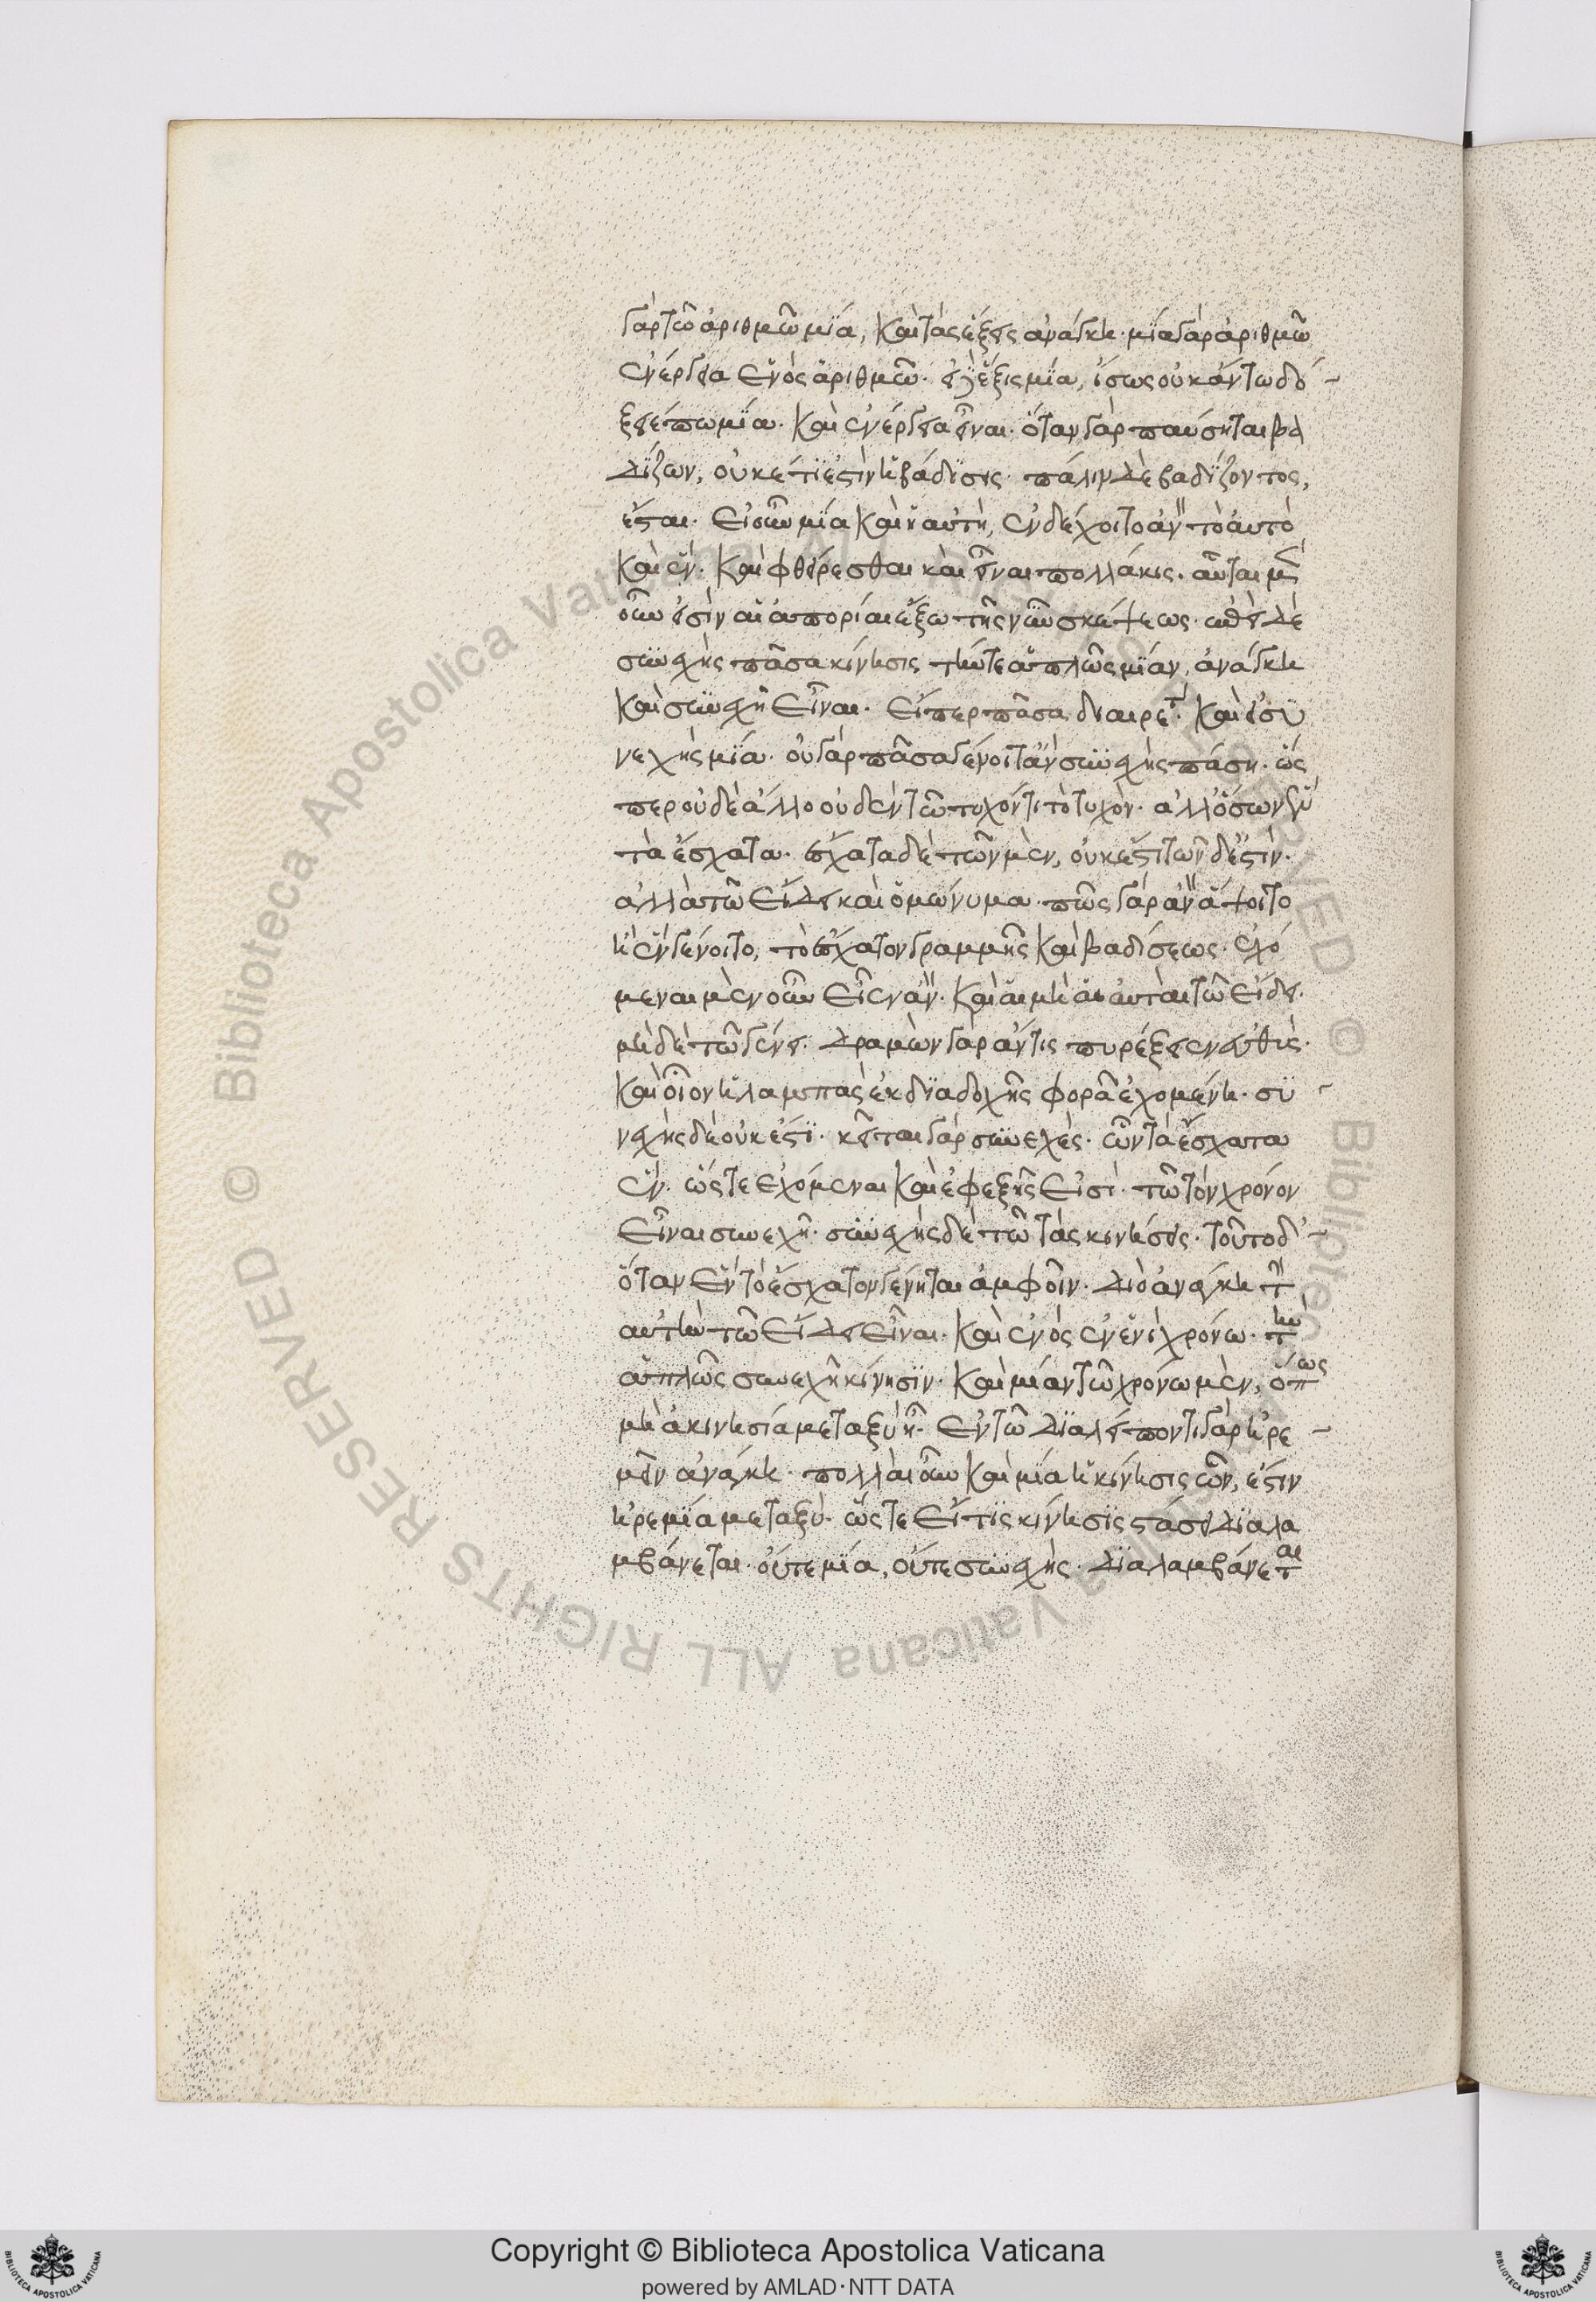 γὰρ τῶ ἀριθμῶ μία, καὶ τὰς ἕξεις ἀνάγκη· μία γὰρ ἀριθμῶ
ἐνέργεια ἑνὸς ἀριθμῶ· εἰ δ' ἕξις μία, ἴσως οὐκ ἄν τω δό
ξειέ πω μία καὶ ἐνέργεια εἶναι· ὅταν γὰρ παύσηται βα
δίζων, οὐκέτι ἐστὶν ἡ βάδισις· πάλιν δὲ βαδίζοντος,
ἔσται· εἰ οὖν μία καὶ ἡ αὐτὴ, ἐνδέχοιτο ἂν τὸ αὐτὸ
καὶ ἓν· καὶ φθείρεσθαι καὶ εἶναι πολλάκις· αὗται μὲν
οὖν εἰσὶν αἱ ἀπορίαι ἔξω τῆς νῦν σκέψεως· ἐπεὶ δὲ
συνεχὴς πᾶσα κίνησις τήν τε ἁπλῶς μίαν, ἀνάγκη
καὶ συνεχῆ εἶναι· εἴπερ πᾶσα διαιρετ· καὶ εἰ συ
νεχὴς μία· οὐ γὰρ πᾶσα γένοιτ' ἂν συνεχὴς πάση· ὥς
περ οὐδὲ ἄλλο οὐδὲν τῶ τυχόντι τὸ τυχὸν· ἀλλ' ὅσων ἓν
τὰ ἔσχατα· ἔσχατα δὲ τῶν μὲν, οὐκ ἔστι τῶν δ' ἔστιν·
ἀλλὰ τῶ εἴδει καὶ ὁμώνυμα· πῶς γὰρ ἂν ἅψοιτο
ἢ ἓν γένοιτο, τὸ ἔσχατον γραμμῆς καὶ βαδίσεως· ἐχό
μεναι μὲν οὖν εἶεν ἂν· καὶ αἱ μὴ αἱ αὐταὶ τῶ εἴδει·
μηδὲ τῶ γένει· δραμὼν γὰρ ἄν τις πυρέξειεν εὐθὺς·
καὶ οἷον ἡ λαμπὰς ἐκ διαδοχῆς φορᾶ ἐχομένη· συ
νεχὴς δὲ οὐκ ἔστι· κεῖται γὰρ συνεχὲς· ὧν τὰ ἔσχατα
ἓν· ὥςτε ἐχόμεναι καὶ ἐφεξῆς εἰσὶ· τῶ τὸν χρόνον
εἶναι συνεχῆ· συνεχὴς δὲ τῶ τὰς κινήσεις· τοῦτο δ'
ὅταν ἓν τὸ ἔσχατον γένηται ἀμφοῖν· διὸ ἀνάγκη τὴν
αὐτὴν τῶ εἴδει εἶναι· καὶ ἑνὸς ἐν ἑνὶ χρόνω· τὴν
ἁπλῶς συνεχῆ κίνησιν· καὶ μίαν τῶ χρόνω μὲν, ὅπως
μὴ ἀκινησία μεταξὺ ᾖ· ἐν τῶ διαλείποντι γὰρ ἠρε
μεῖν ἀνάγκη· πολλαὶ οὖν καὶ μία ἡ κίνησις ὧν, ἐστιν
ἠρεμία μεταξὺ· ὥςτε εἴ τις κίνησις στάσει διαλα
μβάνεται· οὔτε μία, οὔτε συνεχὴς· διαλαμβάνεται